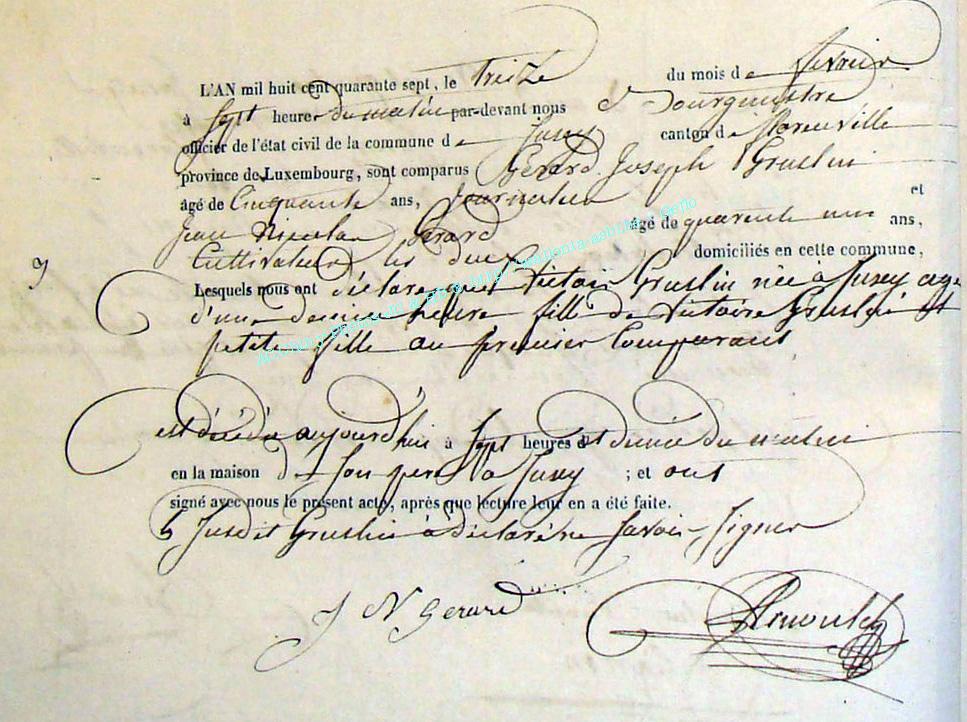 L'AN mil huit cent quarante sept, le treize du mois de février
à sept heures du matin par-devant nous Bourgmestre
officier de l'état civil de la commune de Jusey canton de
province de Luxembourg, sont comparus Gérard Joseph Gruslin
âgé de Cinquante ans, Journalier et
Jean Nicolas Gérard âgé de quarante un ans,
Cultivateur les deux domiciliés en cette commune,
Lesquels nous ont déclaré que Victoire Gruslin née à Jusey agé
d'une demie heure fille de Victoire Gruslin et
petite fille au premier Comparant
est décédée aujourd'hui à sept heures et demie du matin
en la maison de son père à Jusey ; et ont
signé avec nous le présent acte, après que lecture leur en a été faite.
Le Susdit Gruslin à déclaré ne savoir signer
J N Gerard